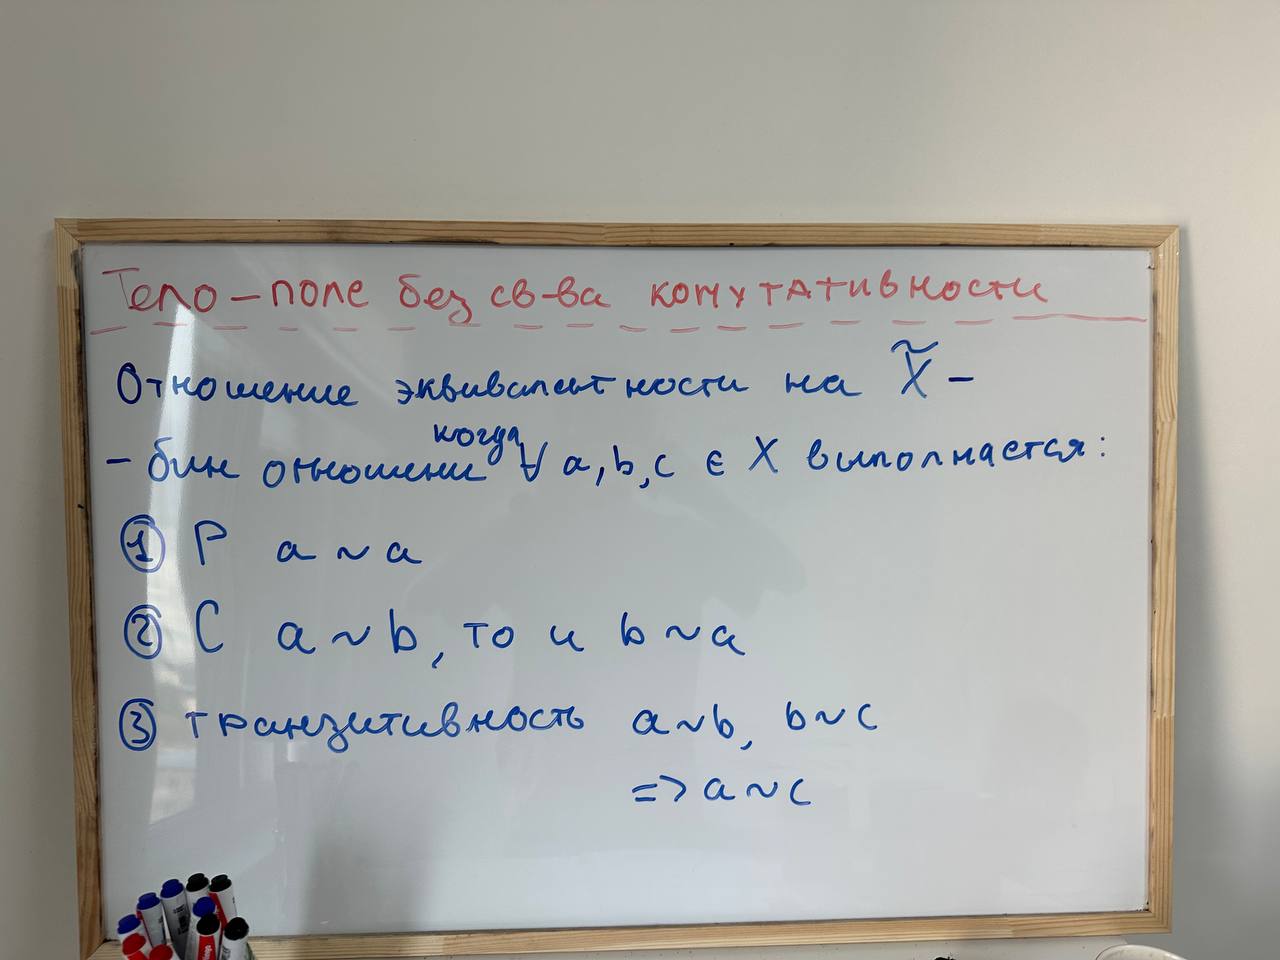 Тело – поле без св-ва комутативности
Отношение эквивалентности на X̃ –
когда
– бин отношени ∀ a, b, c ∈ X выполнается:
① Р a ~ a
② С a ~ b, то и b ~ a
③ транзитивность a ~ b, b ~ c
=> a ~ c